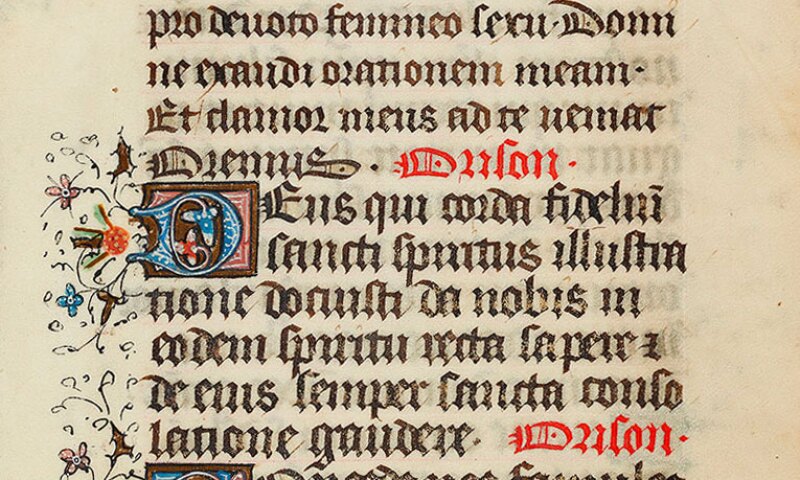 pro devoto femineo sexu. Domi
ne exaudi orationem meam.
Et clamor meus ad te veniat
Oremus. Orison.
DEus qui corda fideliū
sancti spiritus illustra
tione docuisti da nobis in
eodem spiritu recta sapere ⁊
de eius semper sancta conso
latione gaudere. Orison.